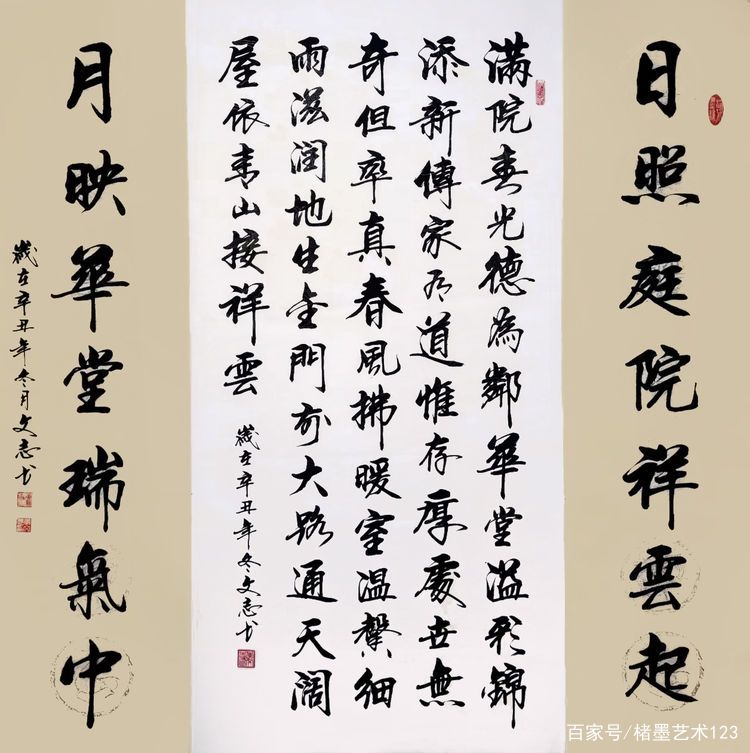 日照庭院祥雲起
满院春光德為鄰華堂溢彩錦
添新傳家有道惟存厚處世無
奇但率真春風拂暖室温馨細
雨滋润地生金門前大路通天阔
屋依青山接祥雲
歲在辛丑年冬文志书
月映華堂瑞氣中
歲在辛丑年冬月文志书
百家号/楮墨艺术123